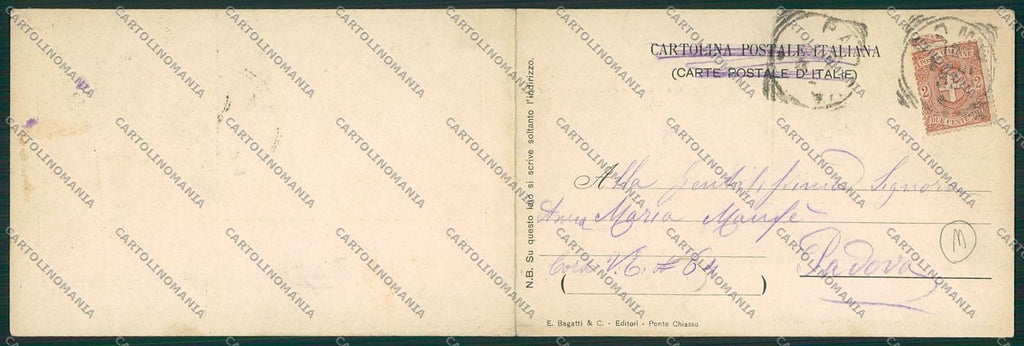 CARTOLINA POSTALE ITALIANA
(CARTE POSTALE D'ITALIE)
2 2
DUE CENT
N.B. Su questo lato si scrive soltanto l'indirizzo.
Alla Gentilissima Signora
Anna Maria Manfè
V. E.
Padova
M
E. Bagatti & C. - Editori - Ponte Chiasso
CARTOLINOMANIA